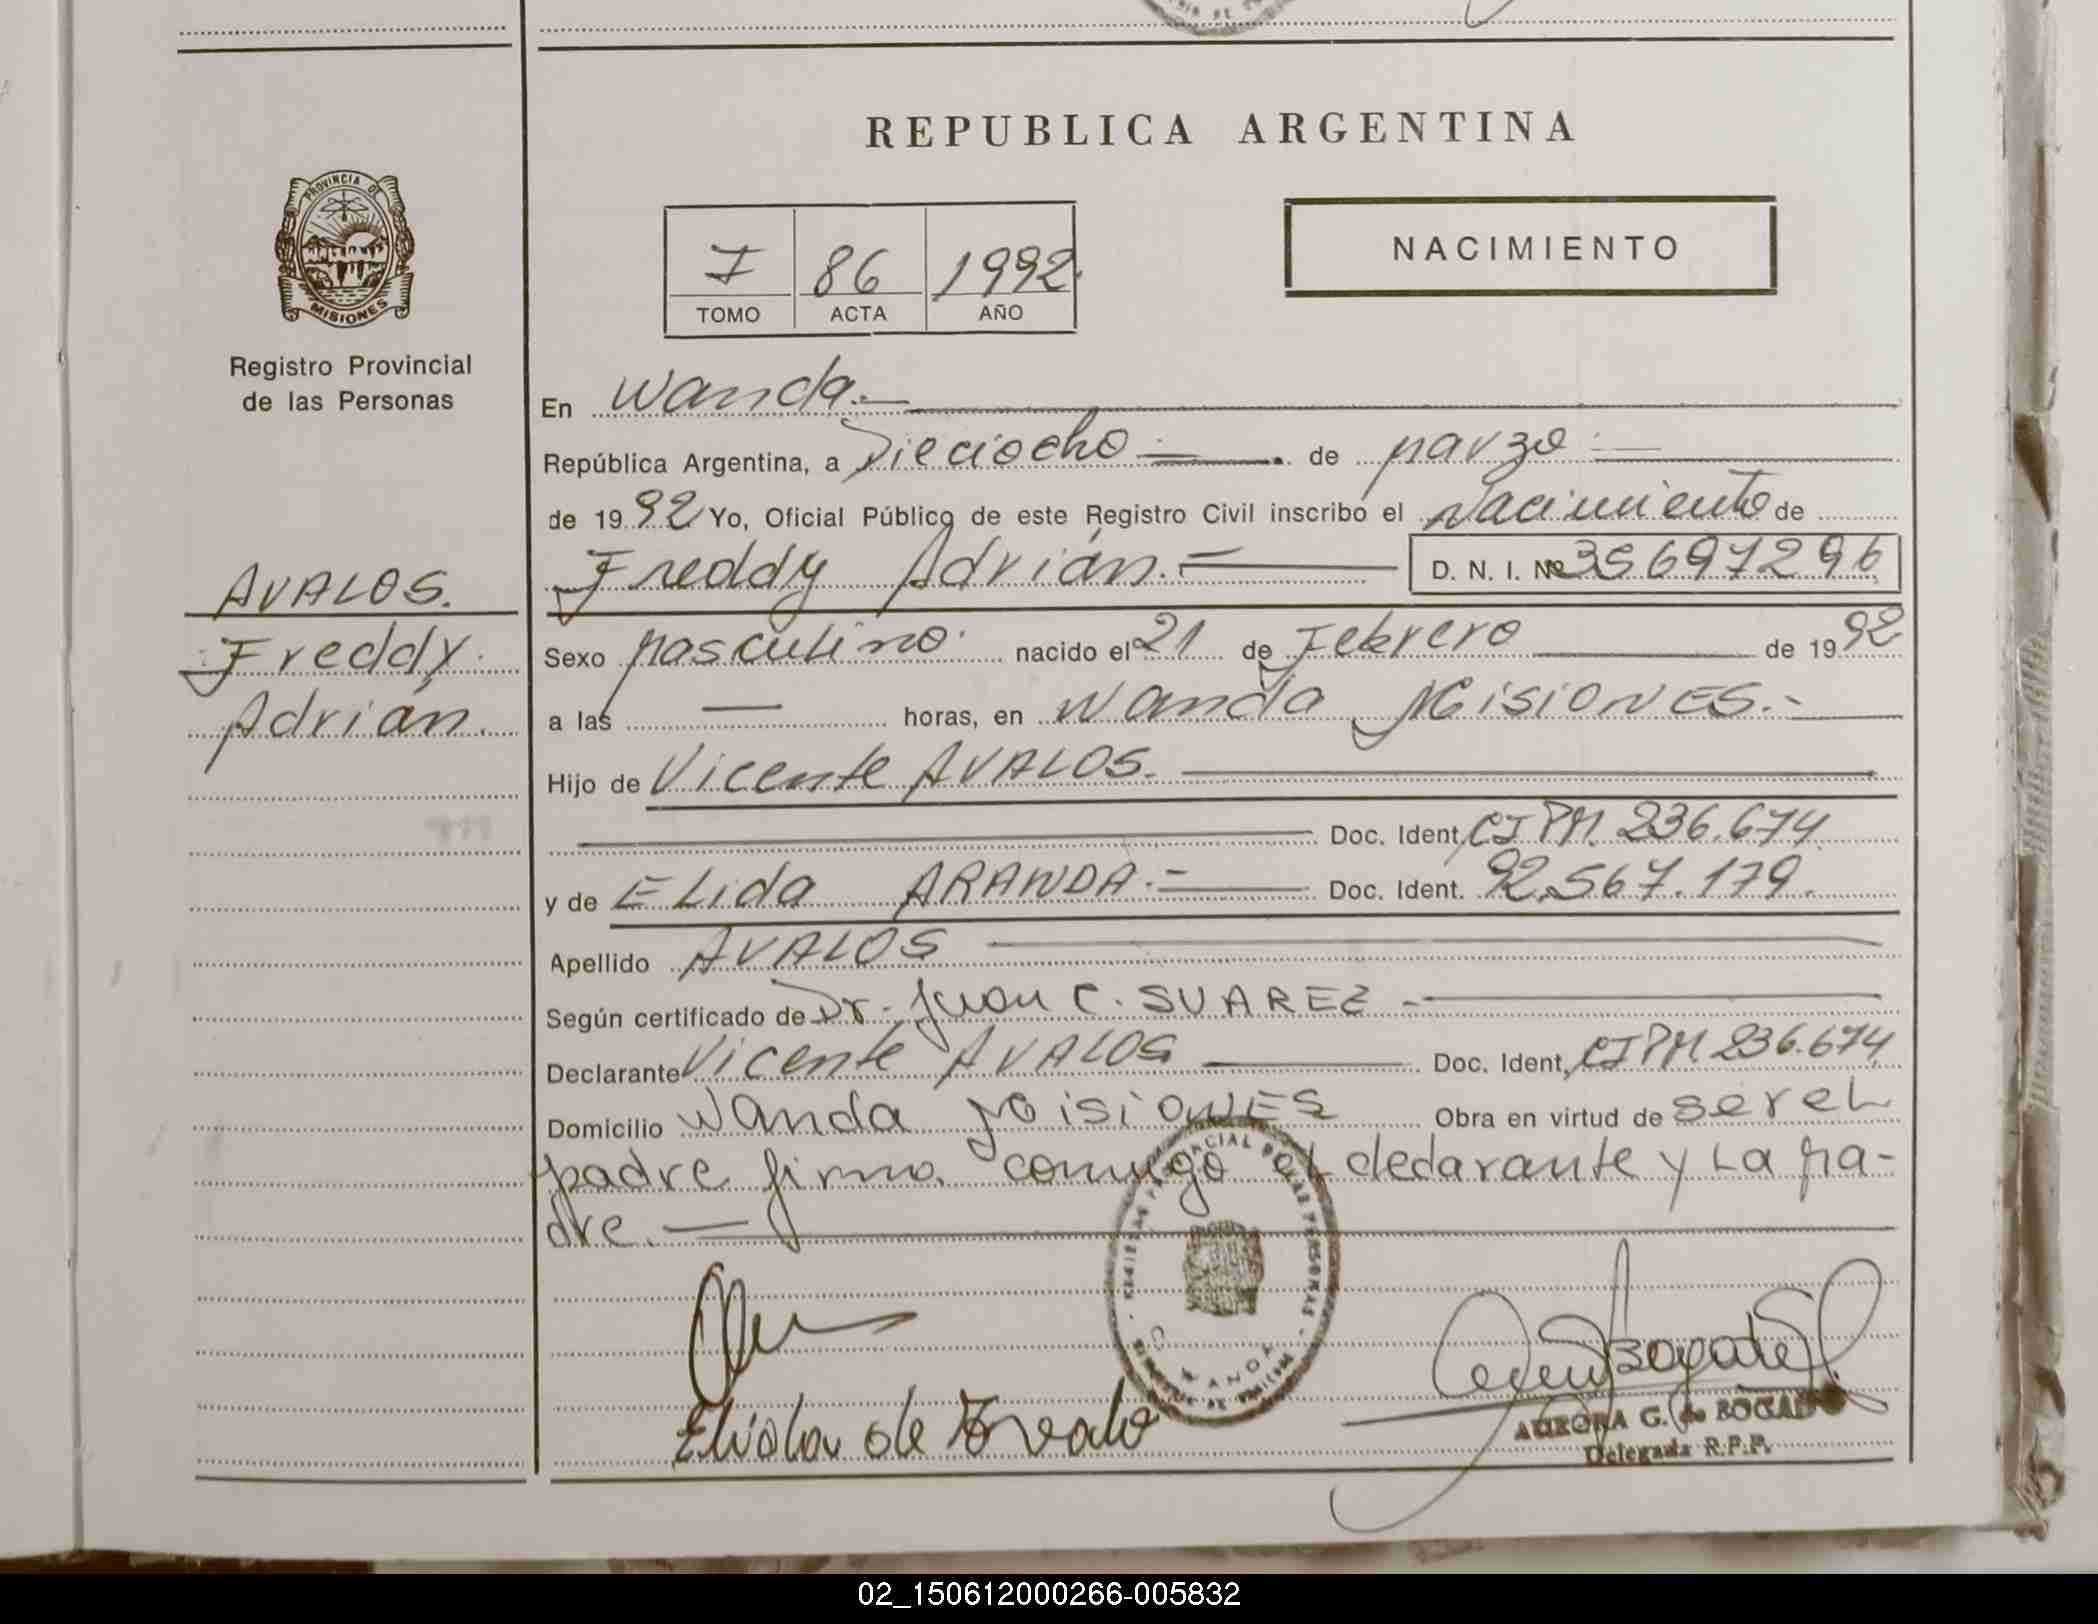 REPUBLICA ARGENTINA
PROVINCIA DE
MISIONES
Registro Provincial
de las Personas
NACIMIENTO
I 86 1992
TOMO ACTA AÑO
En Wanda.—
República Argentina, a Dieciocho — de Marzo —
de 1992 Yo, Oficial Público de este Registro Civil inscribo el Nacimiento de
Freddy Adrián.— D. N. I. Nº 36697296
AVALOS.
Freddy
Adrián.
Sexo Masculino. nacido el 21 de Febrero de 1992
a las — horas, en Wanda Misiones.-
Hijo de Vicente AVALOS.
Doc. Ident. CI PM. 236.674
y de ELida ARANDA.- Doc. Ident. 92.567.179.
Apellido AVALOS
Según certificado de Dr. Juan C. SUAREZ -
Declarante Vicente AVALOS Doc. Ident. CI PM 236.674
Domicilio Wanda Misiones Obra en virtud de ser eL
padre firma conmigo el declarante y La Ma-
dre.—
WANDA
Elida de
AURORA G. de BOGADO
Delegada R.P.P.
02_150612000266-005832